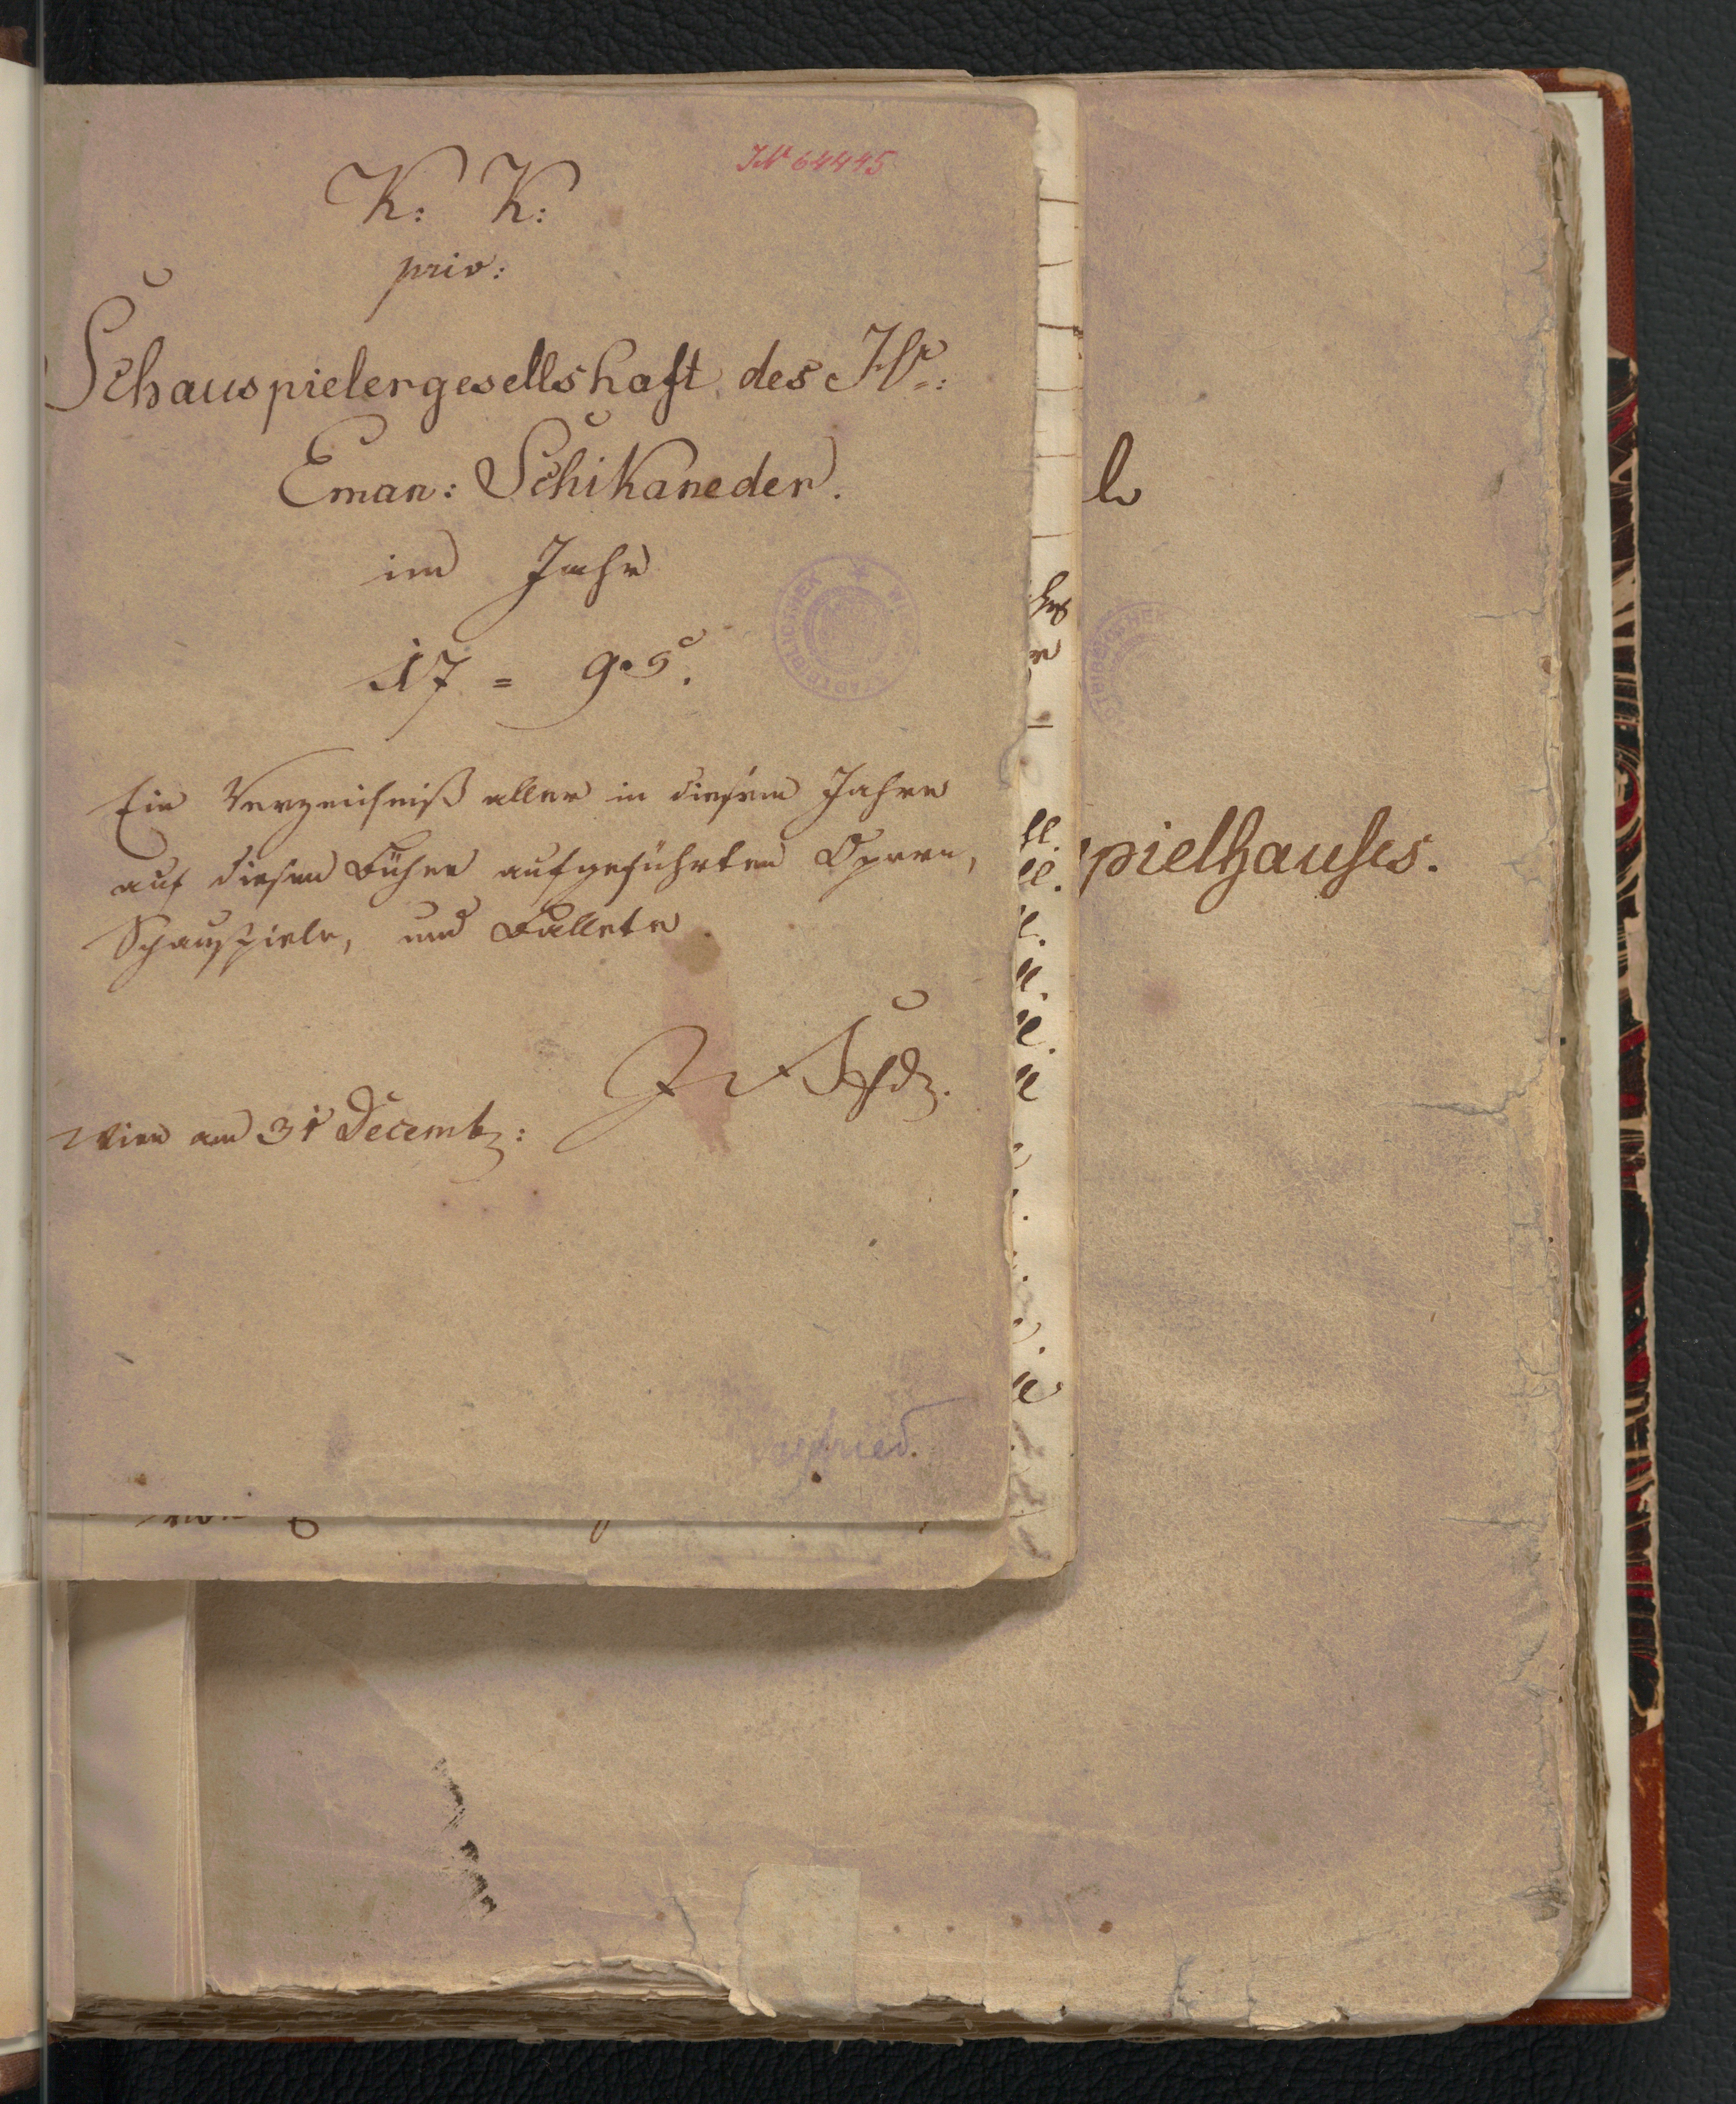 JN 64445
K: K:
priv:
Schauspielergesellshaft des Hr:
Eman: Schikaneder.
im Jahr
17 = 95.
Ein Verzeichniß aller in diesem Jahre
auf dieser Bühne aufgeführten Opern,
Schauspiele, und Ballete
Wien am 31 Decembr:
pielhauses.